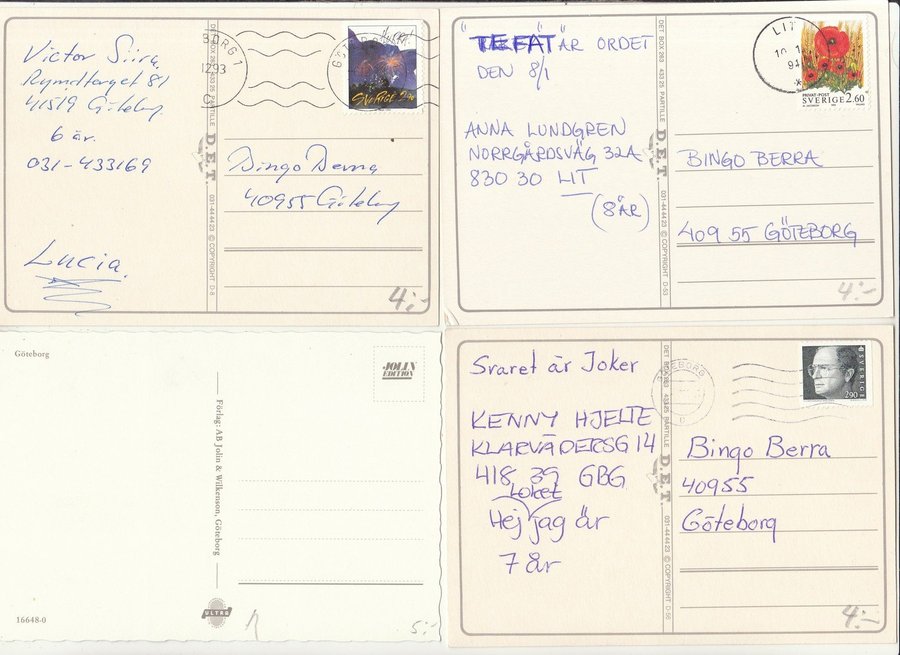 Victor Siira.
Rymdtorget 81
41519 Göteborg
6 år.
031-433169
Lucia.
BORG 1
1293
SVERIGE 2.90
Bingo Berra
40955 Göteborg
DET BOX 263 433 25 PARTILLE
D.E.T.
031-44 44 23 © COPYRIGHT D-8
4:-
"TEFAT" ÄR ORDET
DEN 8/1
ANNA LUNDGREN
NORRGÅRDSVÄG 32A
830 30 LIT
(8 ÅR)
LIT
PRIVAT-POST
SVERIGE 2.60
BINGO BERRA
409 55 GÖTEBORG
DET BOX 263 433 25 PARTILLE
D.E.T.
031-44 44 23 © COPYRIGHT D-53
4:-
Göteborg
JOLIN
EDITION
Förlag: AB Jolin & Wilkenson, Göteborg
ULTRA
16648-0
5:-
Svaret är Joker
KENNY HJELTE
KLARVÄDERSG 14
418 39 GBG
Loket
Hej jag är
7 år
SVERIGE
290
Bingo Berra
40955
Göteborg
DET BOX 263 433 25 PARTILLE
D.E.T.
031-44 44 23 © COPYRIGHT D-56
4:-